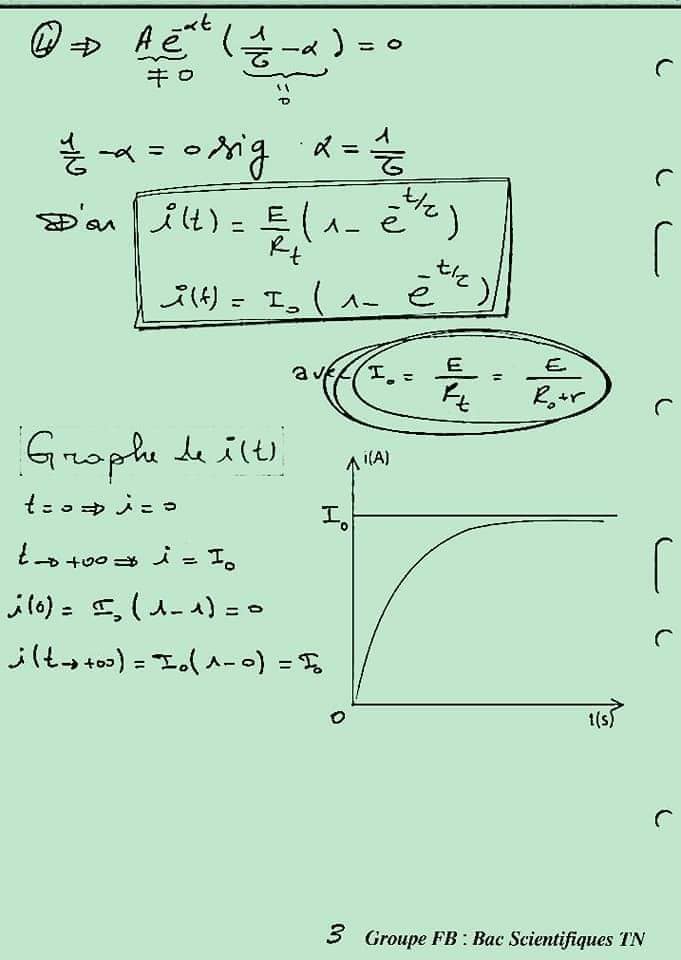 ④ ⇒ A e^-αt (1/τ - α) = 0
≠ 0
= 0
1/τ - α = 0 sig α = 1/τ
D'où i(t) = E/R_t (1 - e^-t/τ)
i(t) = I₀ (1 - e^-t/τ)
avec I₀ = E/R_t = E/(R₀+r)
Graphe de i(t)
t = 0 ⇒ i = 0
t → +∞ ⇒ i = I₀
i(0) = I₀ (1 - 1) = 0
i(t → +∞) = I₀(1 - 0) = I₀
i(A)
I₀
0
t(s)
3 Groupe FB : Bac Scientifiques TN